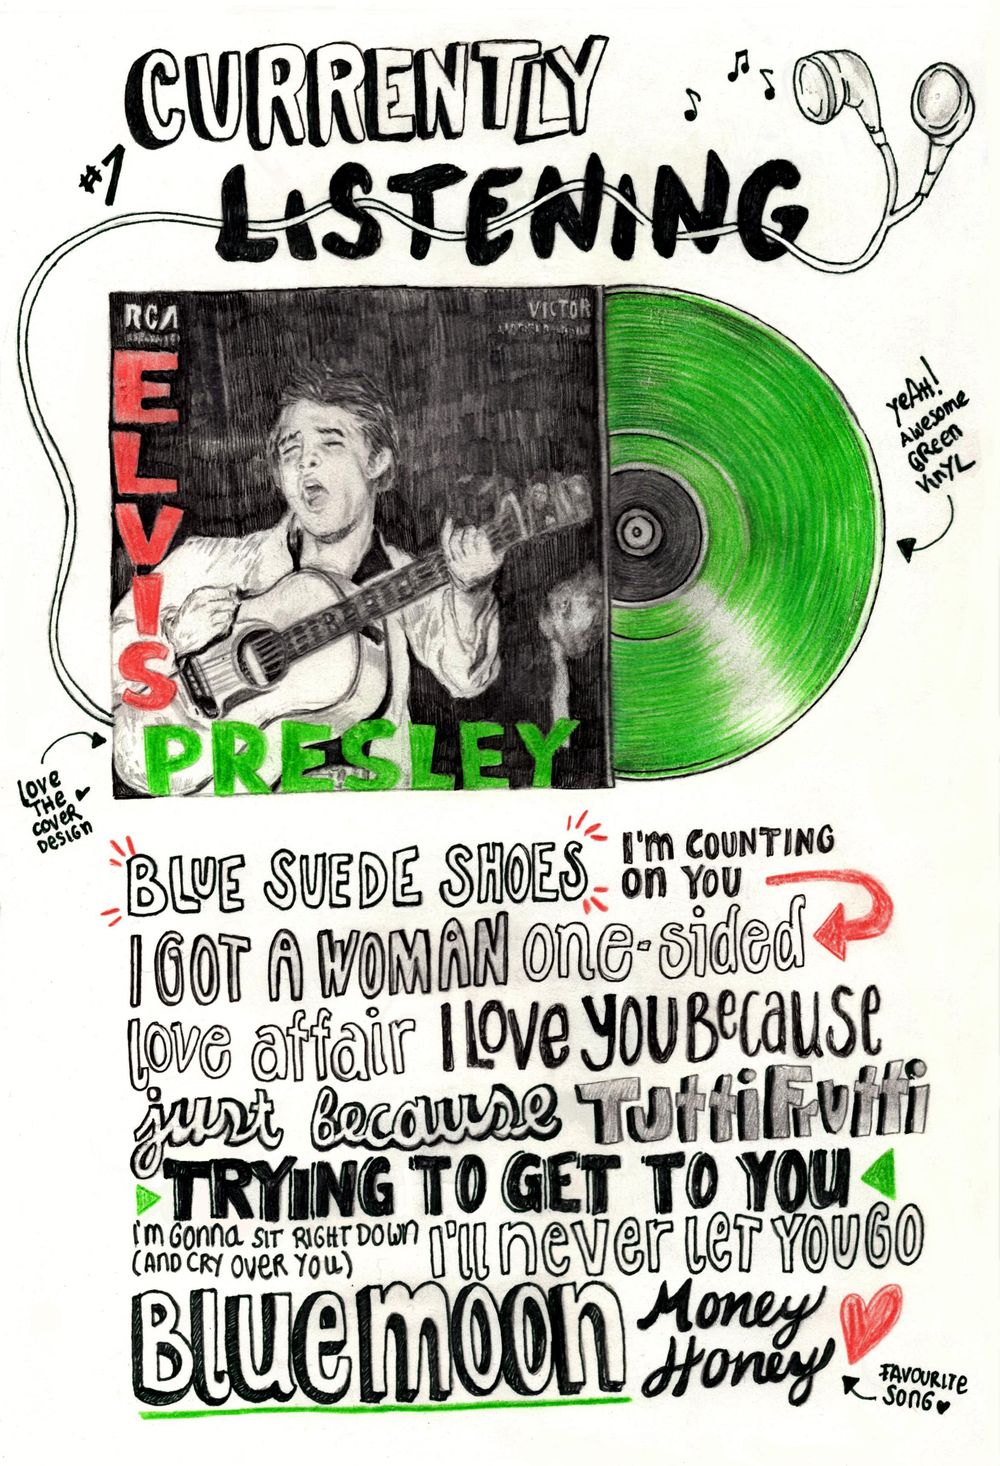 CURRENTLY
#1
LISTENING
RCA
VICTOR
ELVIS
PRESLEY
YeAH!
AWesome
GReen
VinYL
LOVe
THe
COVeR
DesiGn
BLUE SUEDE SHOES
I'm COUNTING
on YOU
I GOT A WOMAN one-sided
love affair I Love YOU Because
just because Tutti Frutti
TRYING TO GET TO YOU
i'm GOnna SIT RIGHT DOWN
(AND CRY OVeR YOU)
I'll never LeT YOU GO
Blue moon
Money
Honey
FAVOURITe
SONG